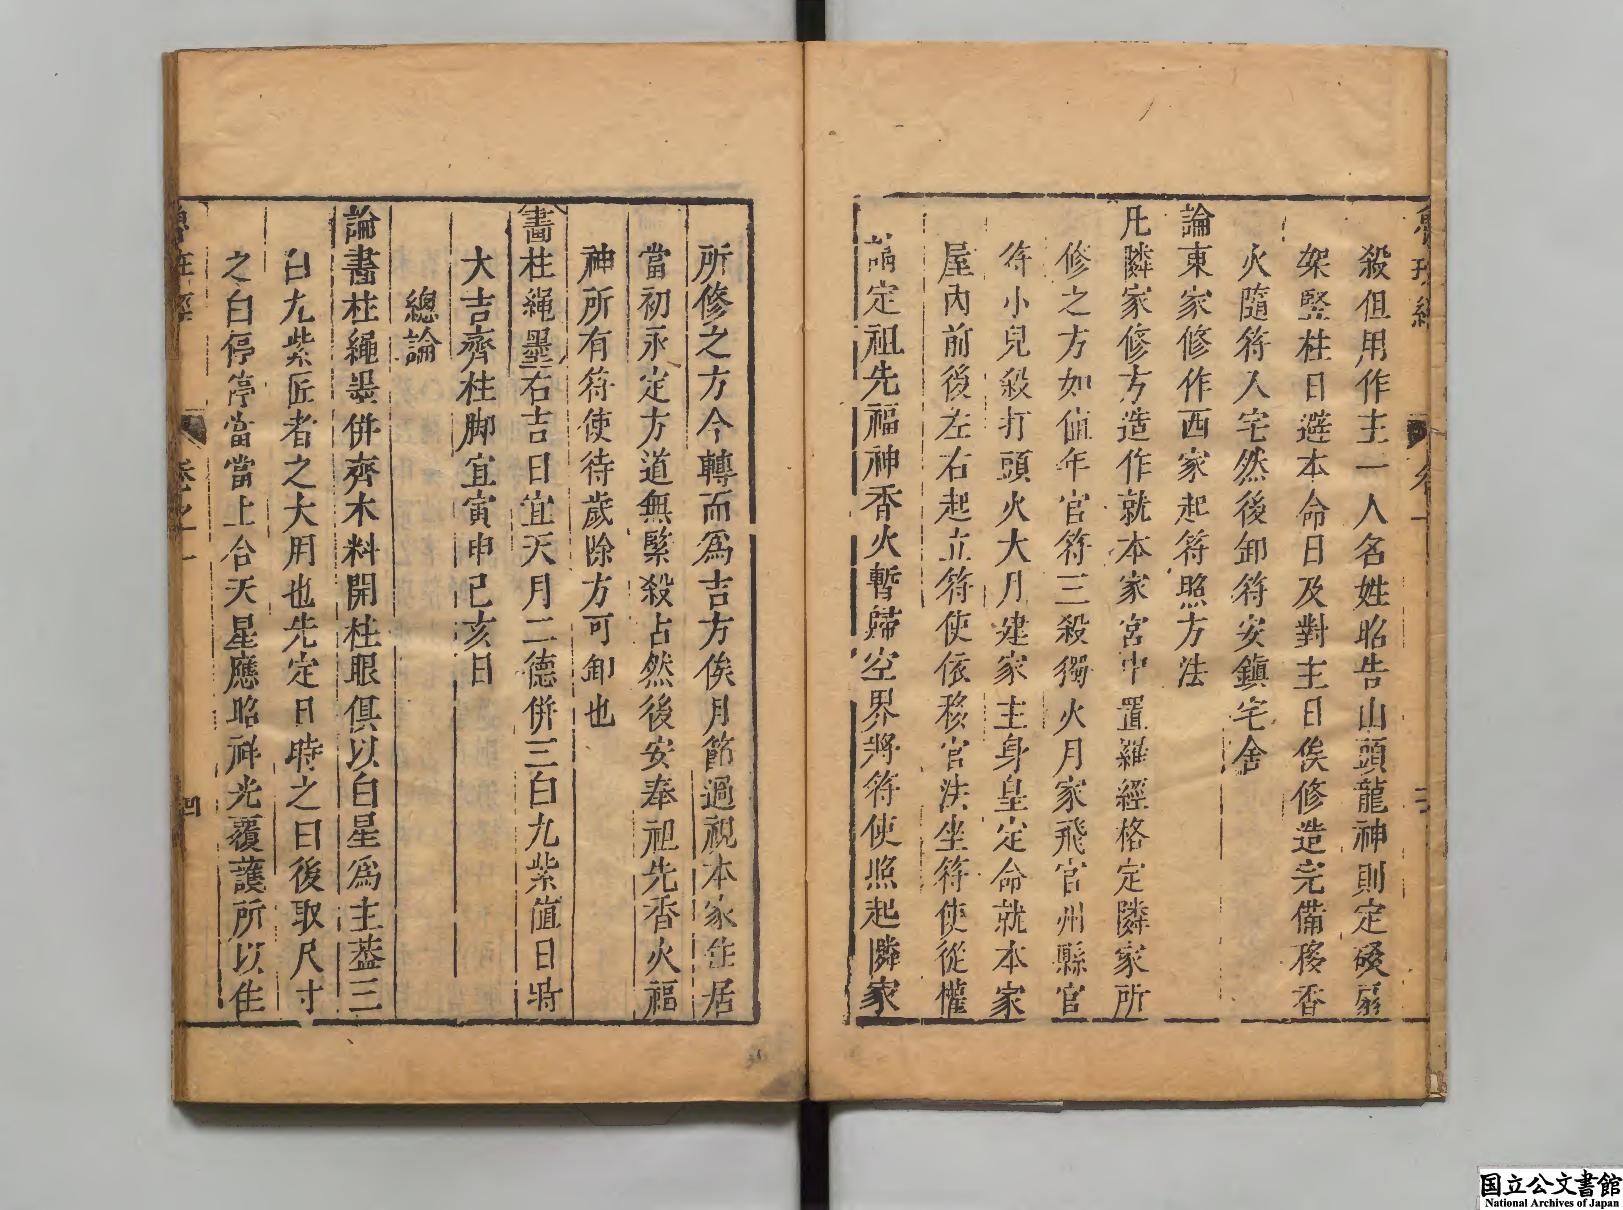 殺但用作主一人名姓昭告山頭龍神則定磉扇
架竪柱日避本命日及對主日俟修造完備移香
火隨符入宅然後卸符安鎮宅舍
論東家修作西家起符照方法
凡隣家修方造作就本家宮中置羅經格定隣家所
修之方如値年官符三殺獨火月家飛宮州縣官
符小兒殺打頭火大月建家主身皇定命就本家
屋內前後左右起立符使依移宮法坐符使從權
請定祖先福神香火暫歸空界將符使照起隣家
所修之方今轉而為吉方俟月節過視本家住居
當初永定方道無緊殺占然後安奉祖先香火福
神所有符使待歲除方可卸也
畵柱繩墨右吉日宜天月二德併三白九紫值日時
大吉齊柱脚宜寅申巳亥日
總論
論畵柱繩墨併齊木料開柱眼俱以白星為主葢三
白九紫匠者之大用也先定日時之白後取尺寸
之白停停當當上合天星應昭祥光覆護所以住
魯班經
卷之一
四
国立公文書館
National Archives of Japan